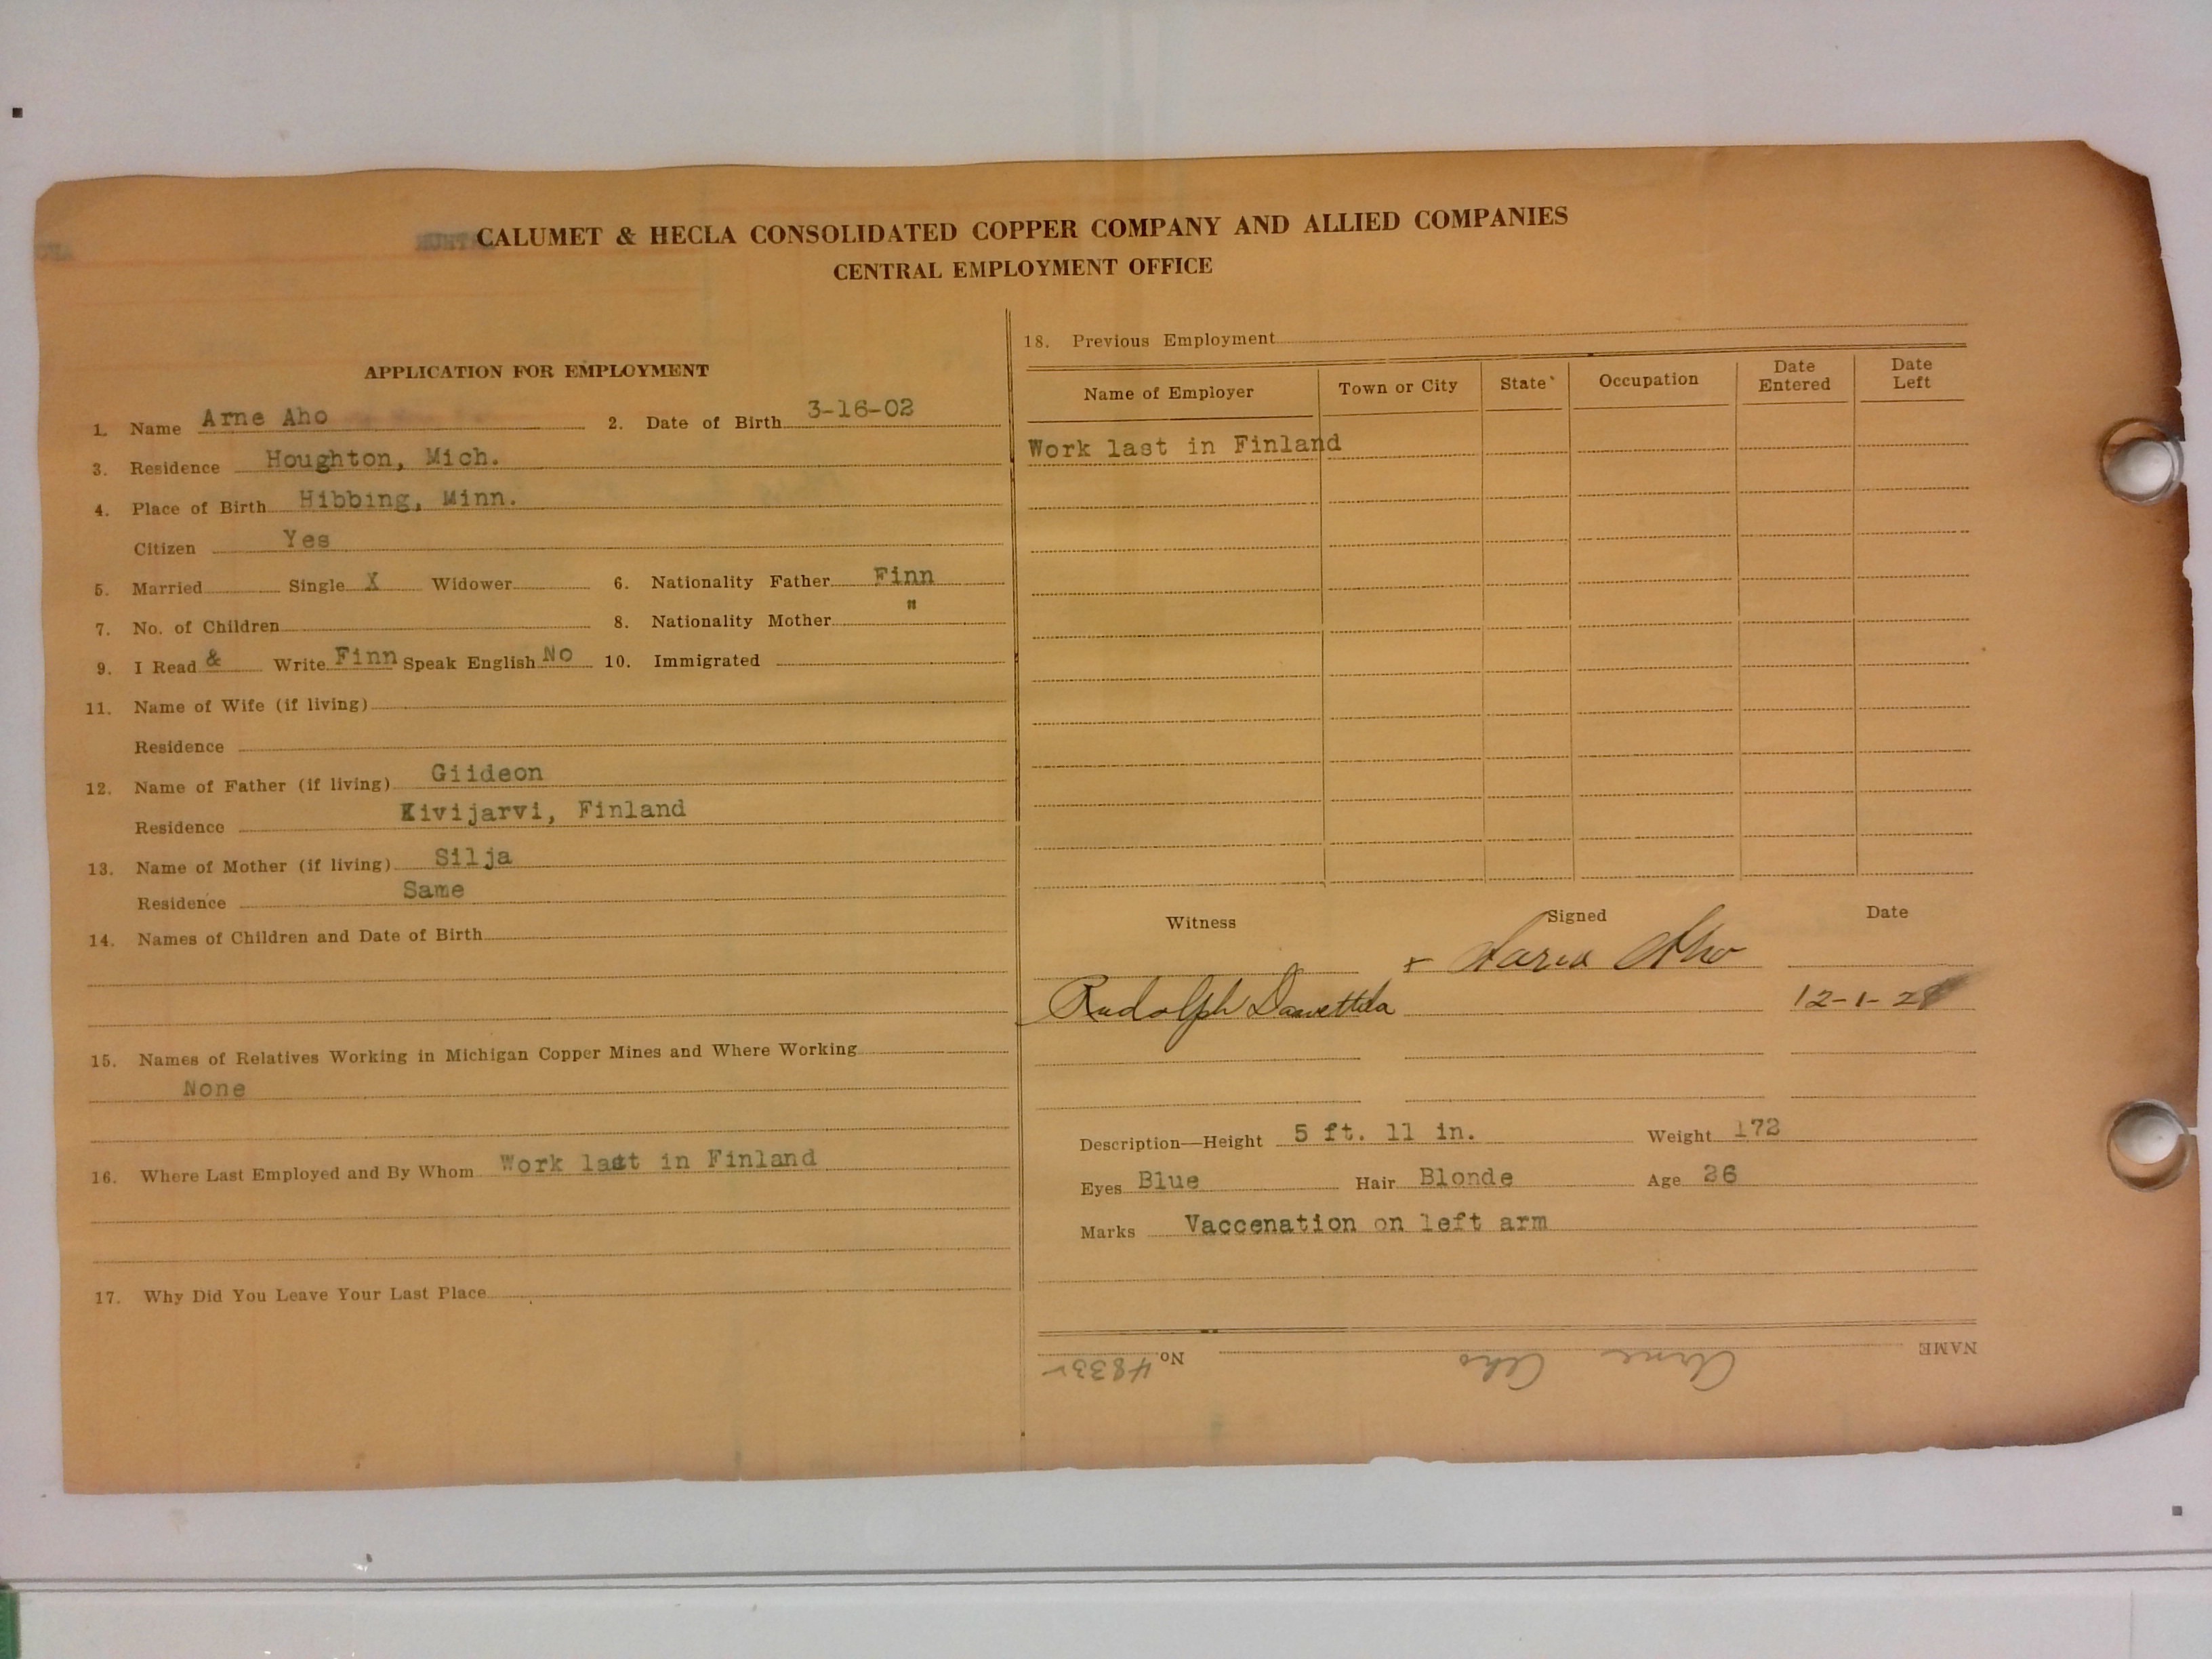 CALUMET & HECLA CONSOLIDATED COPPER COMPANY AND ALLIED COMPANIES
CENTRAL EMPLOYMENT OFFICE
APPLICATION FOR EMPLOYMENT
1. Name Arne Aho 2. Date of Birth 3-16-02
3. Residence Houghton, Mich.
4. Place of Birth Hibbing, Minn.
Citizen Yes
5. Married Single X Widower 6. Nationality Father Finn
7. No. of Children 8. Nationality Mother "
9. I Read & Write Finn Speak English No 10. Immigrated
11. Name of Wife (if living)
Residence
12. Name of Father (if living) Giideon
Residence Kivijarvi, Finland
13. Name of Mother (if living) Silja
Residence Same
14. Names of Children and Date of Birth
15. Names of Relatives Working in Michigan Copper Mines and Where Working
None
16. Where Last Employed and By Whom Work last in Finland
17. Why Did You Leave Your Last Place
18. Previous Employment
Name of Employer Town or City State Occupation Date Entered Date Left
Work last in Finland
Witness Signed Date
x Aho
Rudolph 12-1-28
Description—Height 5 ft. 11 in. Weight 172
Eyes Blue Hair Blonde Age 26
Marks Vaccenation on left arm
NAME Arne Aho No.